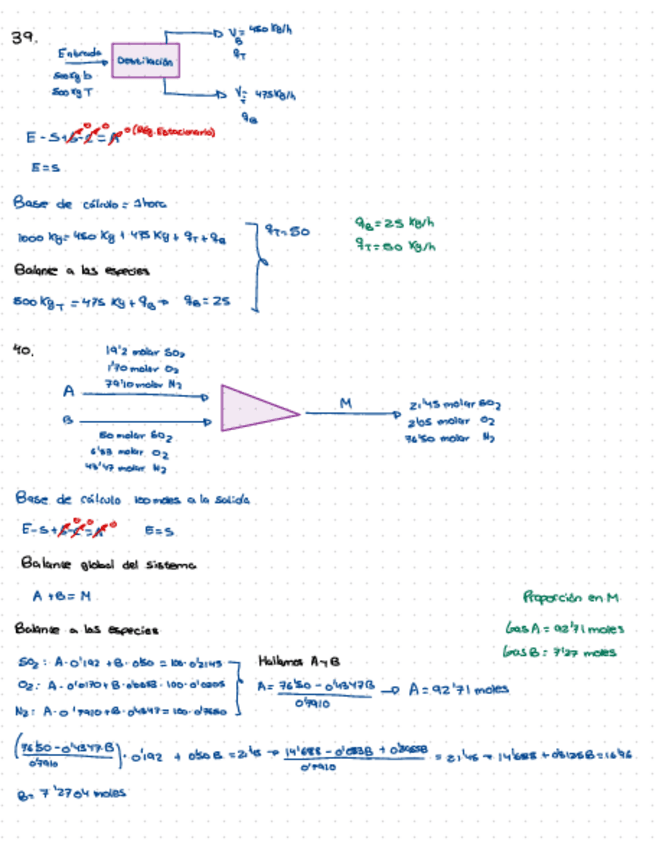 39.
Entrada
500 kg b
500 kg T
Destilación
V_B = 450 Kg/h
q_T
V_T = 475 Kg/h
q_B
E - S + G - C = A 0 0 0 (Rég. Estacionario)
E = S
Base de cálculo = 1 hora
1000 Kg = 450 Kg + 475 Kg + q_T + q_B
q_T = 50
q_B = 25 Kg/h
q_T = 50 Kg/h
Balance a las especies
500 Kg_T = 475 Kg + q_B → q_B = 25
40.
19'2 molar SO₂
1'70 molar O₂
79'10 molar N₂
A
B
50 molar SO₂
6'53 molar O₂
43'47 molar N₂
M
21'45 molar SO₂
2'05 molar O₂
76'50 molar N₂
Base de cálculo 100 moles a la salida
E - S + G - C = A 0 0 0 E = S
Balance global del sistema
A + B = M
Proporción en M
Gas A = 92'71 moles
Gas B = 7'27 moles
Balance a las especies
SO₂: A · 0'192 + B · 0'50 = 100 · 0'2145
O₂: A · 0'0170 + B · 0'0653 · 100 · 0'0205
N₂: A · 0'7910 + B · 0'4347 = 100 · 0'7650
Hallamos A y B
A = (76'50 - 0'4347B) / 0'7910 → A = 92'71 moles
((76'50 - 0'4347·B) / 0'7910) · 0'192 + 0'50 B = 21'45 → / 0'7910 = 21'45 →
B = 7'2704 moles